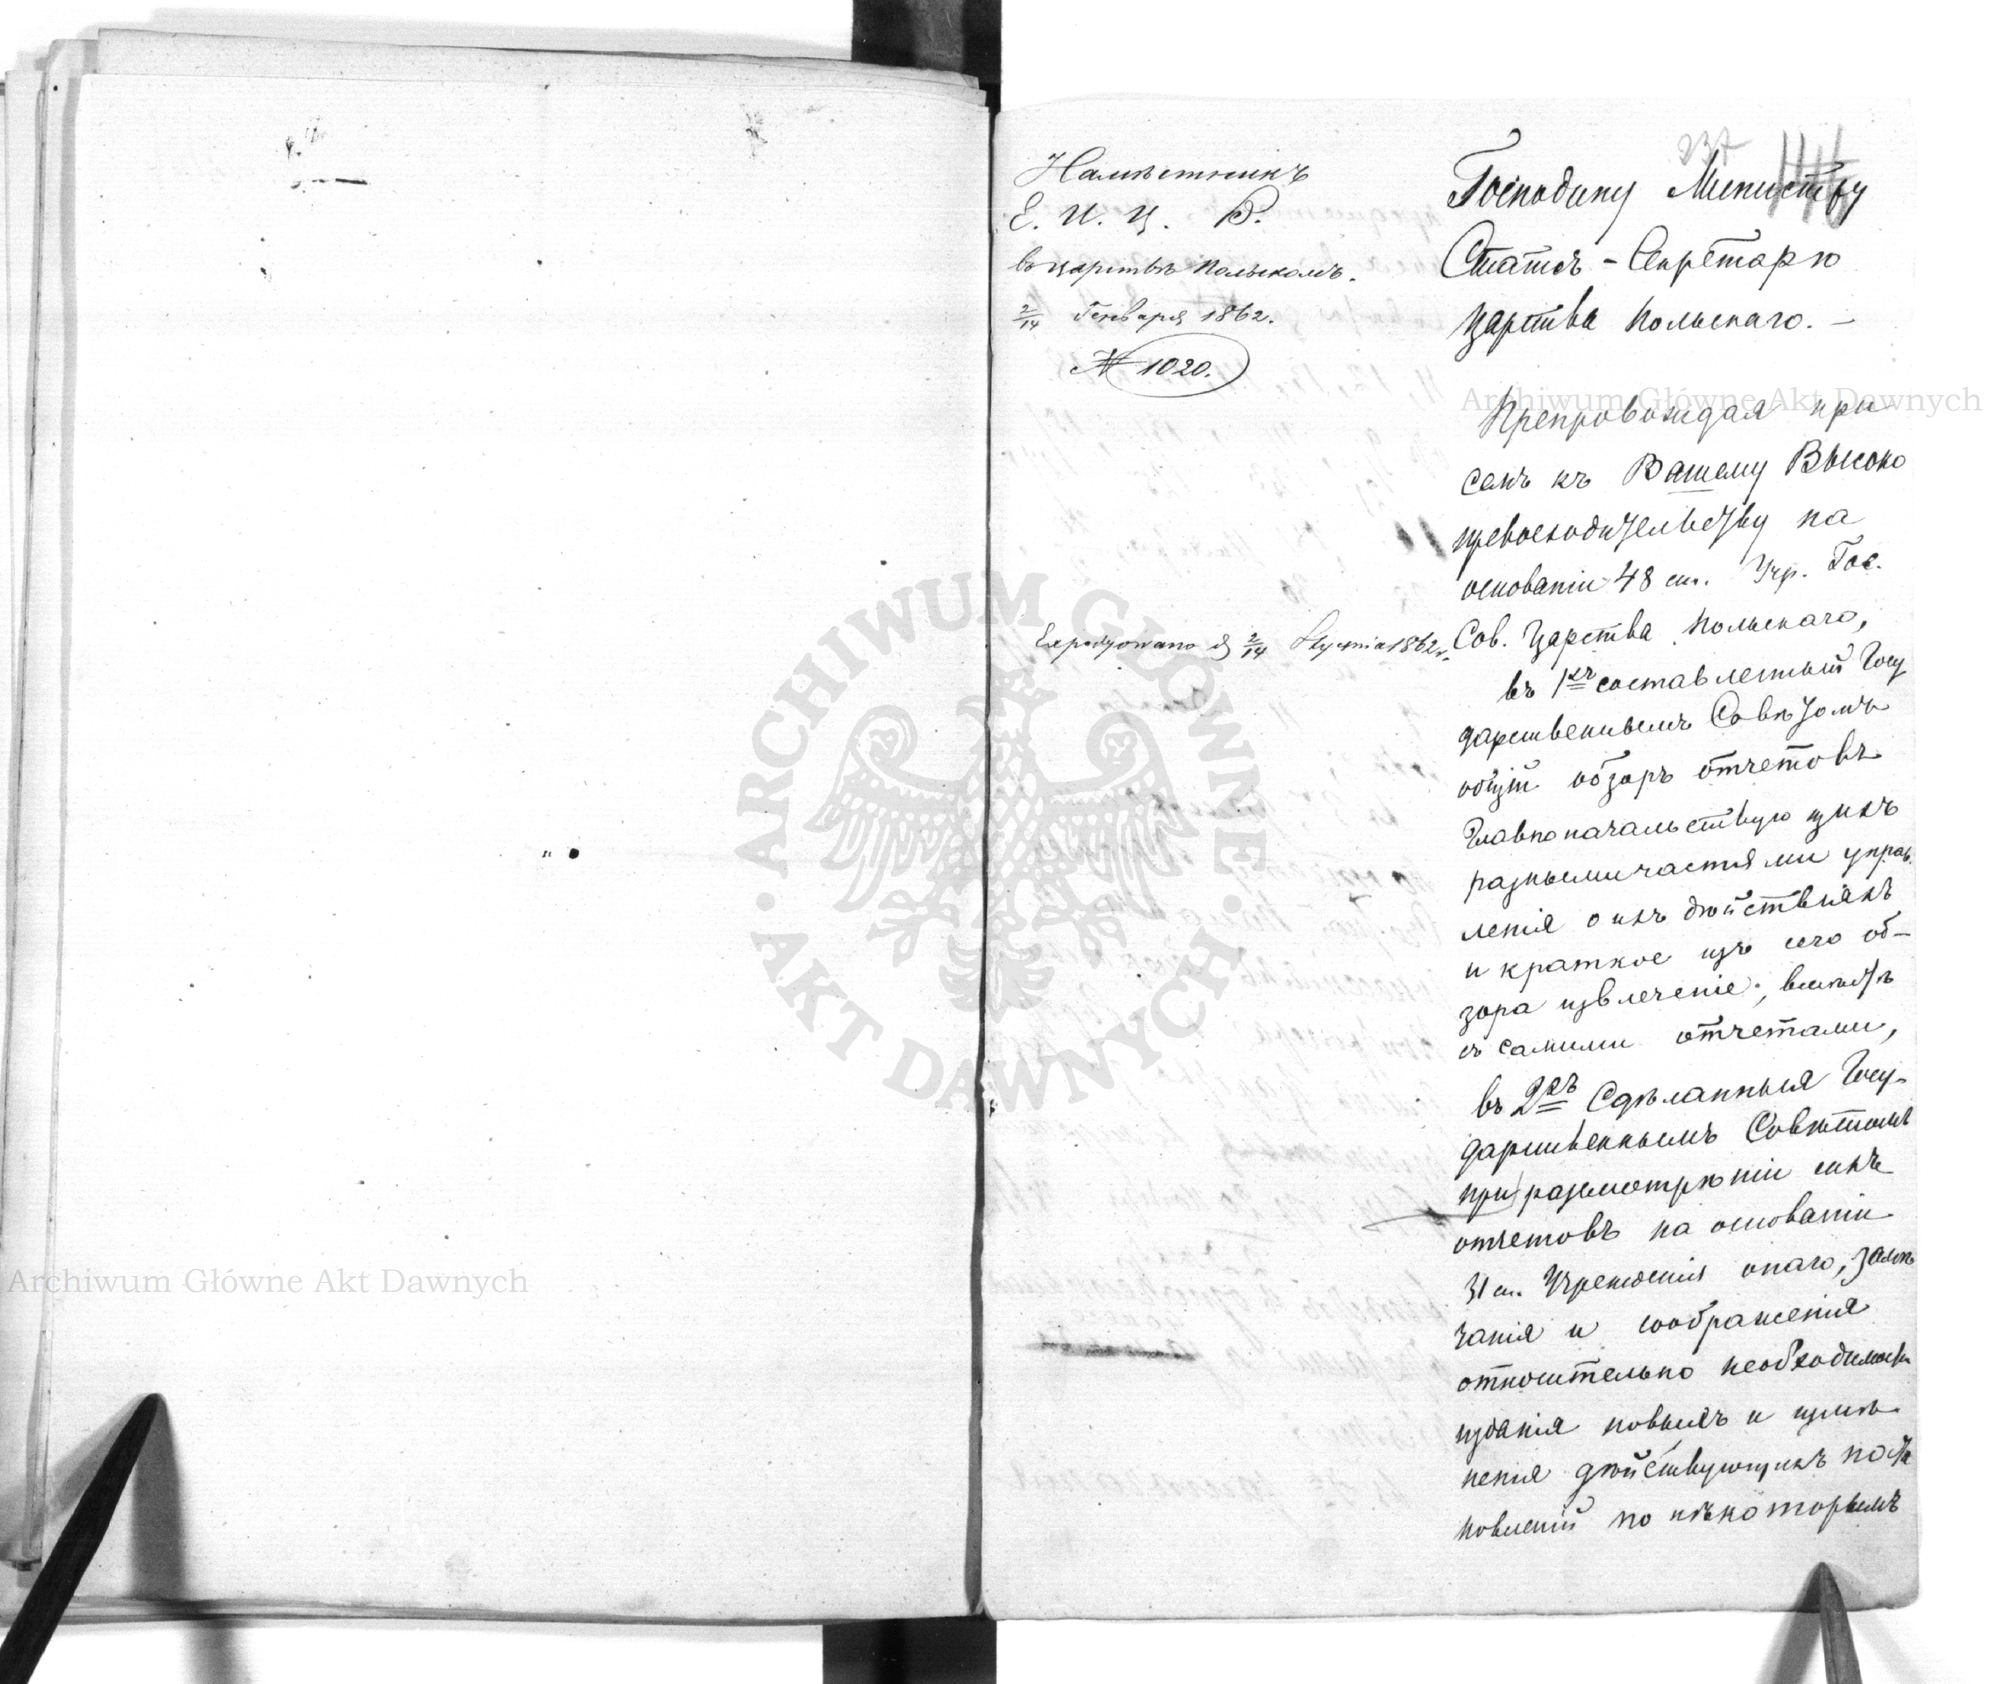 Намѣстникъ
Е. И. Ц. В.
въ царствѣ Польскомъ.
2/14 Генваря 1862.
№ 1020.
Expedyowano d 2/14 Stycznia 1862 r.
237
Господину Министру
Статсъ-Секретарю
Царства Польскаго. —
Препровождая при
семъ къ Вашему Высоко
превосходительству на
основаніи 48 ст. Учр. Гос.
Сов. Царства Польскаго,
въ 1хъ составленный Госу
дарственнымъ Совѣтомъ
общій обзоръ отчетовъ
Главноначальствующихъ
разными частями управ.
ленія о ихъ дѣйствіяхъ
и краткое изъ сего об-
зора извлеченіе, вмѣстѣ
съ самими отчетами,
въ 2хъ Сдѣланныя Госу-
дарственнымъ Совѣтомъ
при разсмотрѣніи сихъ
отчетовъ на основаніи
31 ст. Учрежденія онаго, замѣ
чанія и соображенія
относительно необходимости
изданія новыхъ и измѣ
ненія дѣйствующихъ поста
новленій по нѣкоторымъ
Archiwum Główne Akt Dawnych
Archiwum Główne Akt Dawnych
ARCHIWUM GŁÓWNE
AKT DAWNYCH